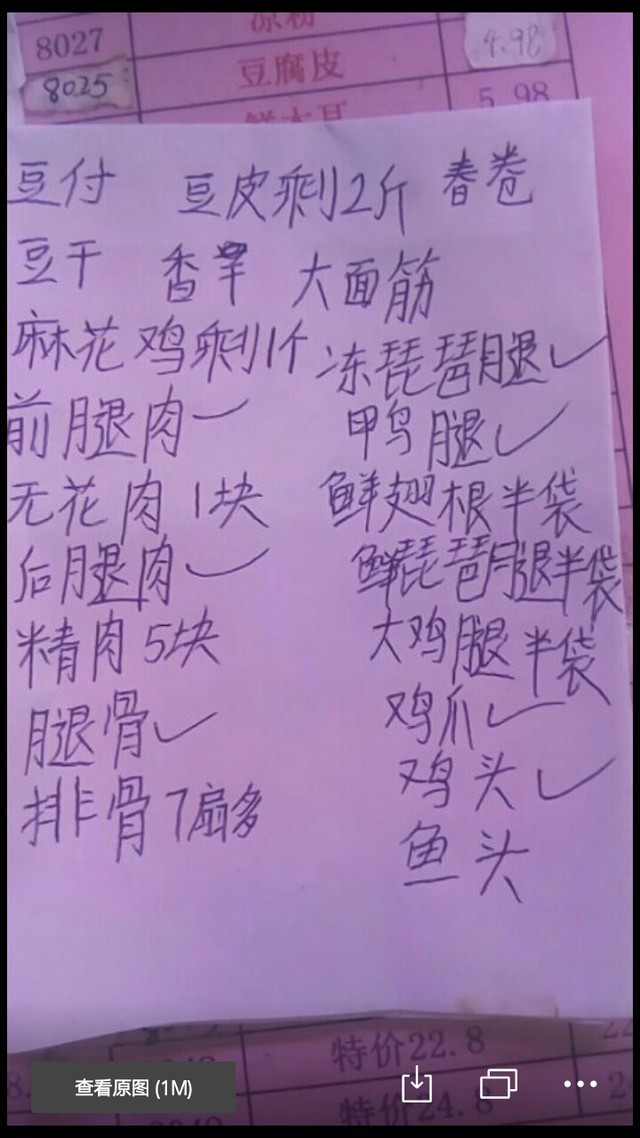 8027
8025
豆腐皮
4.98
5.98
豆付 豆皮剩2斤 春卷
豆干 香 大面筋
麻花 鸡剩1个 冻琵琶腿✓
前腿肉 鸭腿✓
无花肉 1块 鲜翅根半袋
后腿肉✓ 鲜琵琶腿半袋
精肉5块 大鸡腿半袋
腿骨✓ 鸡爪✓
排骨7扇多 鸡头✓
鱼头
特价22.8
特价24.8
查看原图 (1M)